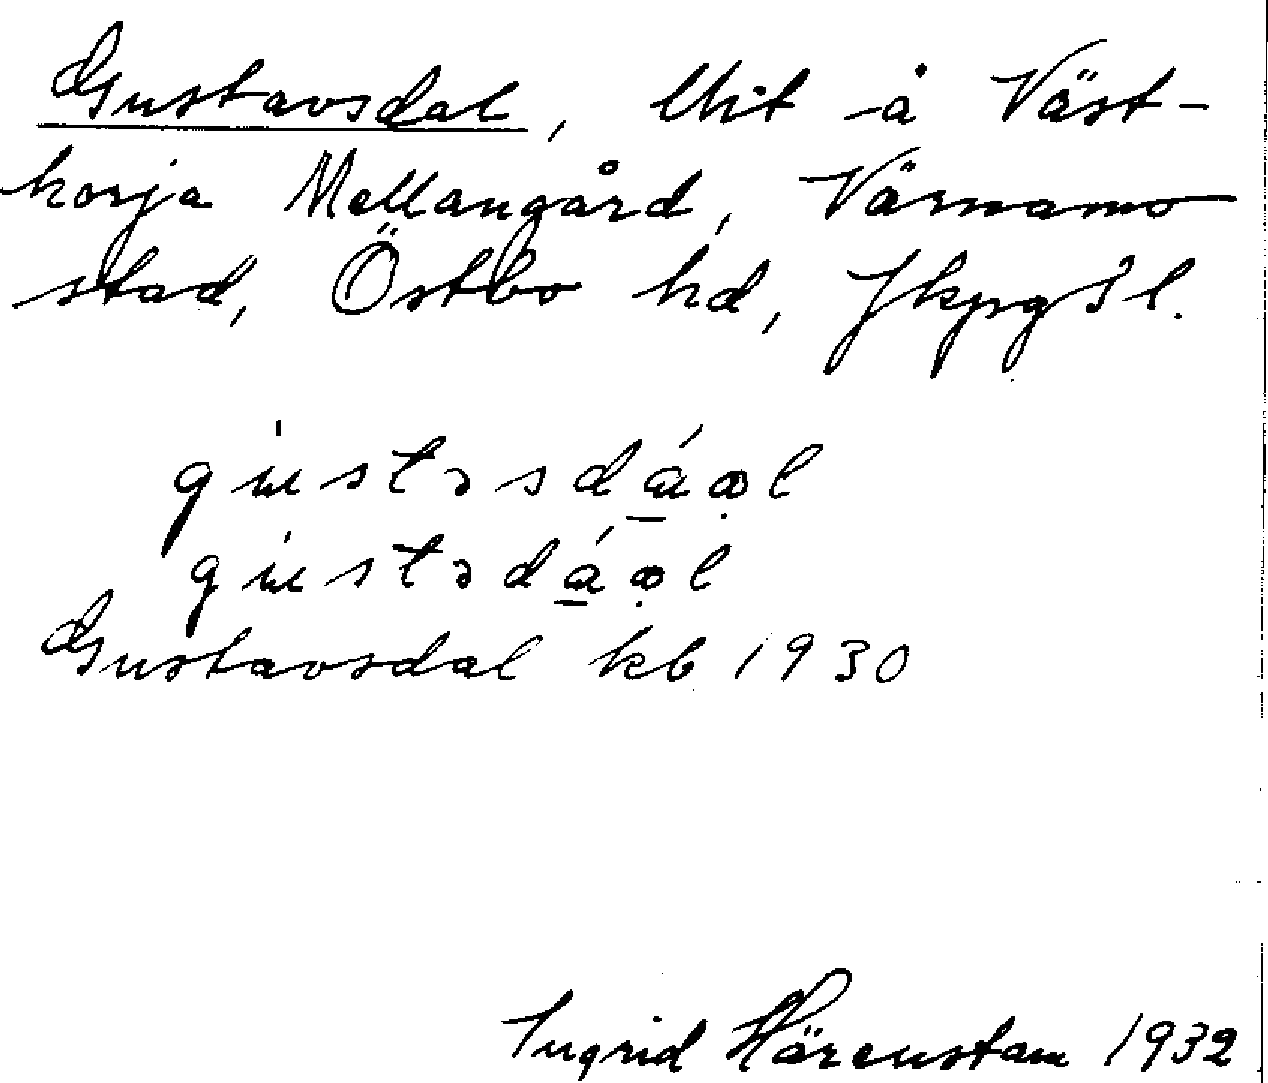 Gustavsdal, lht å Väst-
horja Mellangård, Värnamo
stad, Östbo hd, Jkpgs l.
Gustavsdal kb 1930
Ingrid Härenstam 1932